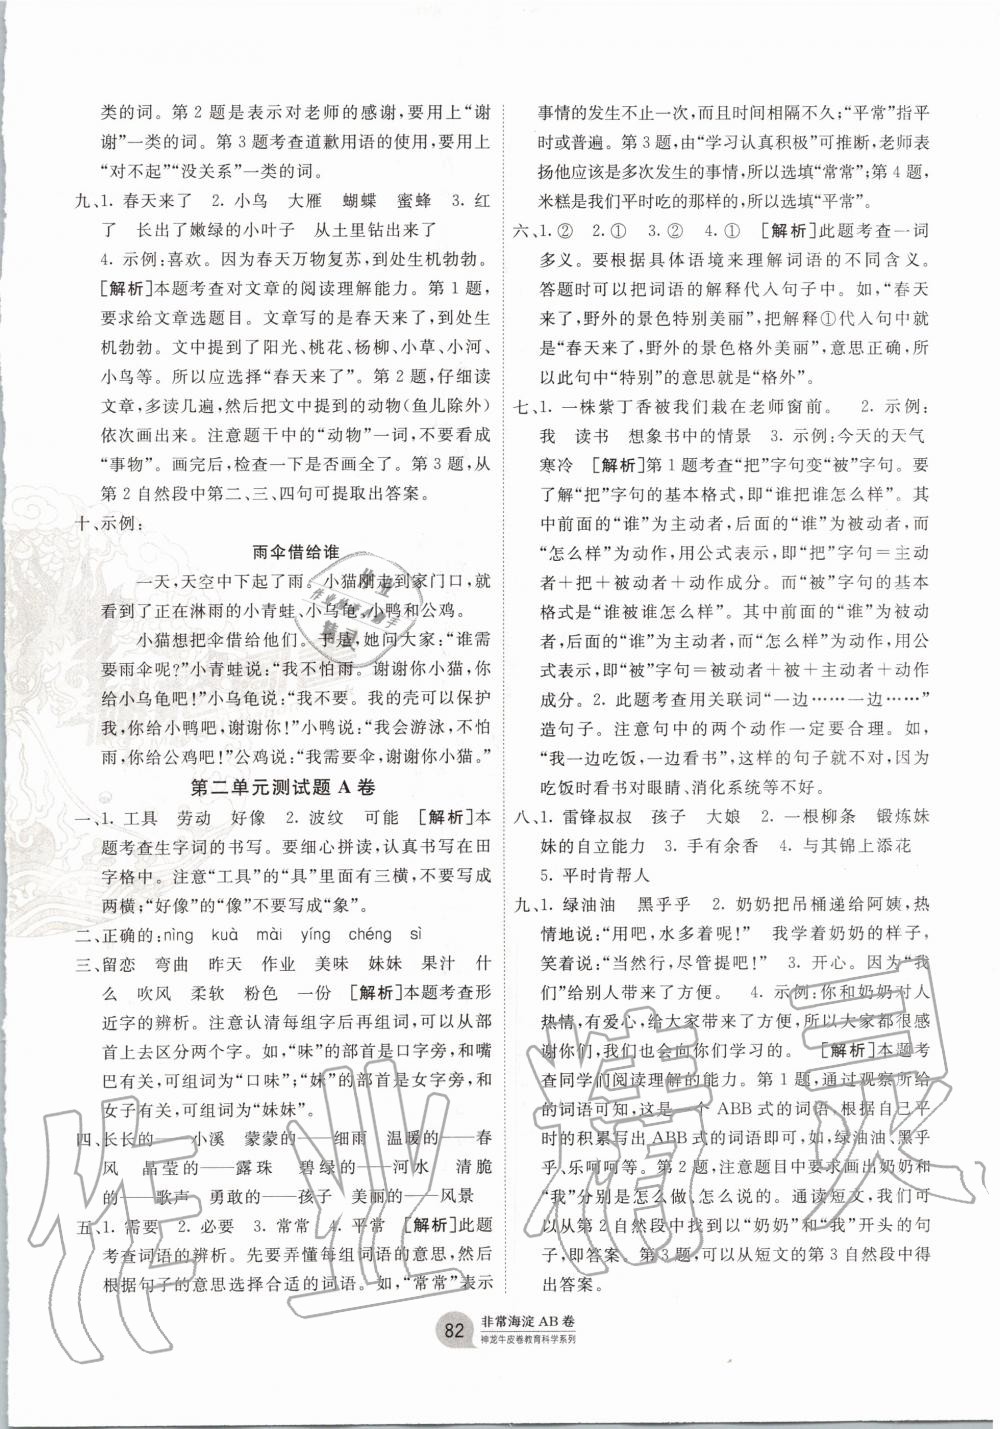 类的词。第 2 题是表示对老师的感谢,要用上“谢
谢”一类的词。第 3 题考查道歉用语的使用,要用上
“对不起”“没关系”一类的词。
九、1. 春天来了　2. 小鸟　大雁　蝴蝶　蜜蜂　3. 红
了　长出了嫩绿的小叶子　从土里钻出来了
4. 示例:喜欢。因为春天万物复苏,到处生机勃勃。
[解析]本题考查对文章的阅读理解能力。第 1 题,
要求给文章选题目。文章写的是春天来了,到处生
机勃勃。文中提到了阳光、桃花、杨柳、小草、小河、
小鸟等。所以应选择“春天来了”。第 2 题,仔细读
文章,多读几遍,然后把找到的动物(鱼儿除外)
依次画出来。注意题干中的“动物”一词,不要看成
“事物”。画完后,检查一下是否找全了。第 3 题,从
第 2 自然段中第二、三、四句可提取出答案。
十、示例:
雨伞借给谁
一天,天空中下起了雨。小猫刚走到家门口,就
看到了正在淋雨的小青蛙、小乌龟、小鸭和公鸡。
小猫想把伞借给他们。于是,她问大家:“谁需
要雨伞呢?”小青蛙说:“我不怕雨。谢谢你小猫,你
给小乌龟吧!”小乌龟说:“我不要。我的壳可以保护
我,你给小鸭吧,谢谢你!”小鸭说:“我会游泳,不怕
雨,你给公鸡吧!”公鸡说:“我需要伞,谢谢你小猫。”
第二单元测试题 A 卷
一、1. 工具　劳动　好像　2. 波纹　可能　[解析]本
题考查生字词的书写。要细心拼读,认真书写在田
字格中。注意“工具”的“具”里面有三横,不要写成
两横;“好像”的“像”不要写成“象”。
二、正确的:nìng　kuà　mài　yíng　chéng　sì
三、留恋　弯曲　昨天　作业　美味　妹妹　果汁　什
么　吹风　柔软　粉色　一份　[解析]本题考查形
近字的辨析。注意认清每组字后再组词,可以从部
首上去区分两个字。如,“味”的部首是口字旁,和嘴
巴有关,可组词为“口味”;“妹”的部首是女字旁,和
女子有关,可组词为“妹妹”。
四、长长的——小溪　蒙蒙的——细雨　温暖的——春
风　晶莹的——露珠　碧绿的——河水　清脆
的——歌声　勇敢的——孩子　美丽的——风景
五、1. 需要　2. 必要　3. 常常　4. 平常　[解析]此题
考查词语的辨析。先要弄懂每组词语的意思,然后
根据句子的意思选择合适的词语。如,“常常”表示
事情的发生不止一次,而且时间相隔不久;“平常”指平
时或普遍。第 3 题,由“学习认真积极”可推断,老师表
扬他应该是多次发生的事情,所以选填“常常”;第 4 题,
米糕是我们平时吃的东西,所以选填“平常”。
六、1. ②　2. ①　3. ②　4. ①　[解析]此题考查一词
多义。要根据具体语境来理解词语的不同含义。
答题时可以把词语的解释代入句子中。如,“春天
来了,野外的景色特别美丽”,把解释①代入句中就
是“春天来了,野外的景色格外美丽”,意思正确,所
以此句中“特别”的意思就是“格外”。
七、1. 一株紫丁香被我们栽在老师窗前。　2. 示例:
我　读书　想象书中的情景　3. 示例:今天的天气
寒冷　[解析]第 1 题考查“把”字句变“被”字句。要
了解“把”字句的基本格式,即“谁把谁怎么样”。其
中前面的“谁”为主动者,后面的“谁”为被动者,而
“怎么样”为动作,用公式表示,即“把”字句＝主动
者＋把＋被动者＋动作成分。而“被”字句的基本
格式是“谁被谁怎么样”。其中前面的“谁”为被动
者,后面的“谁”为主动者,而“怎么样”为动作,用公
式表示,即“被”字句＝被动者＋被＋主动者＋动作
成分。2. 此题考查用关联词“一边……一边……”
造句子。注意句中的两个动作一定要合理。如,
“我一边吃饭,一边看书”,这样的句子就不行,因为
吃饭时看书对眼睛、消化系统等不好。
八、1. 雷锋叔叔　孩子　大娘　2. 一根柳条　锻炼妹
妹的自立能力　3. 手有余香　4. 与其锦上添花
5. 平时肯帮人
九、1. 绿油油　黑乎乎　2. 奶奶把吊桶递给阿姨,热
情地说:“用吧,水多着呢!”　我学着奶奶的样子,
说:“当然行,尽管提吧!”　3. 开心。因为“我
们”给别人带来了方便。　4. 示例:你和奶奶对人
热情,有爱心,给大家带来了方便,所以大家都很感
谢你们,我们也会向你们学习的。　[解析]本题考
查同学们阅读理解的能力。第 1 题,通过观察所给
的词语可知,这是一个 ABB 式的词语,根据自己平
时的积累写出 ABB 式的词语即可,如,绿油油、黑乎
乎、乐呵呵等。第 2 题,注意题目中要求画出奶奶和
“我”分别是怎么做、怎么说的。通读短文,我们可
以从第 2 自然段中找到以“奶奶”和“我”开头的句
子,即答案。第 3 题,可以从短文的第 3 自然段中得
出答案。
82
非常海淀 AB 卷
神龙牛皮卷教育科学系列
作业精灵